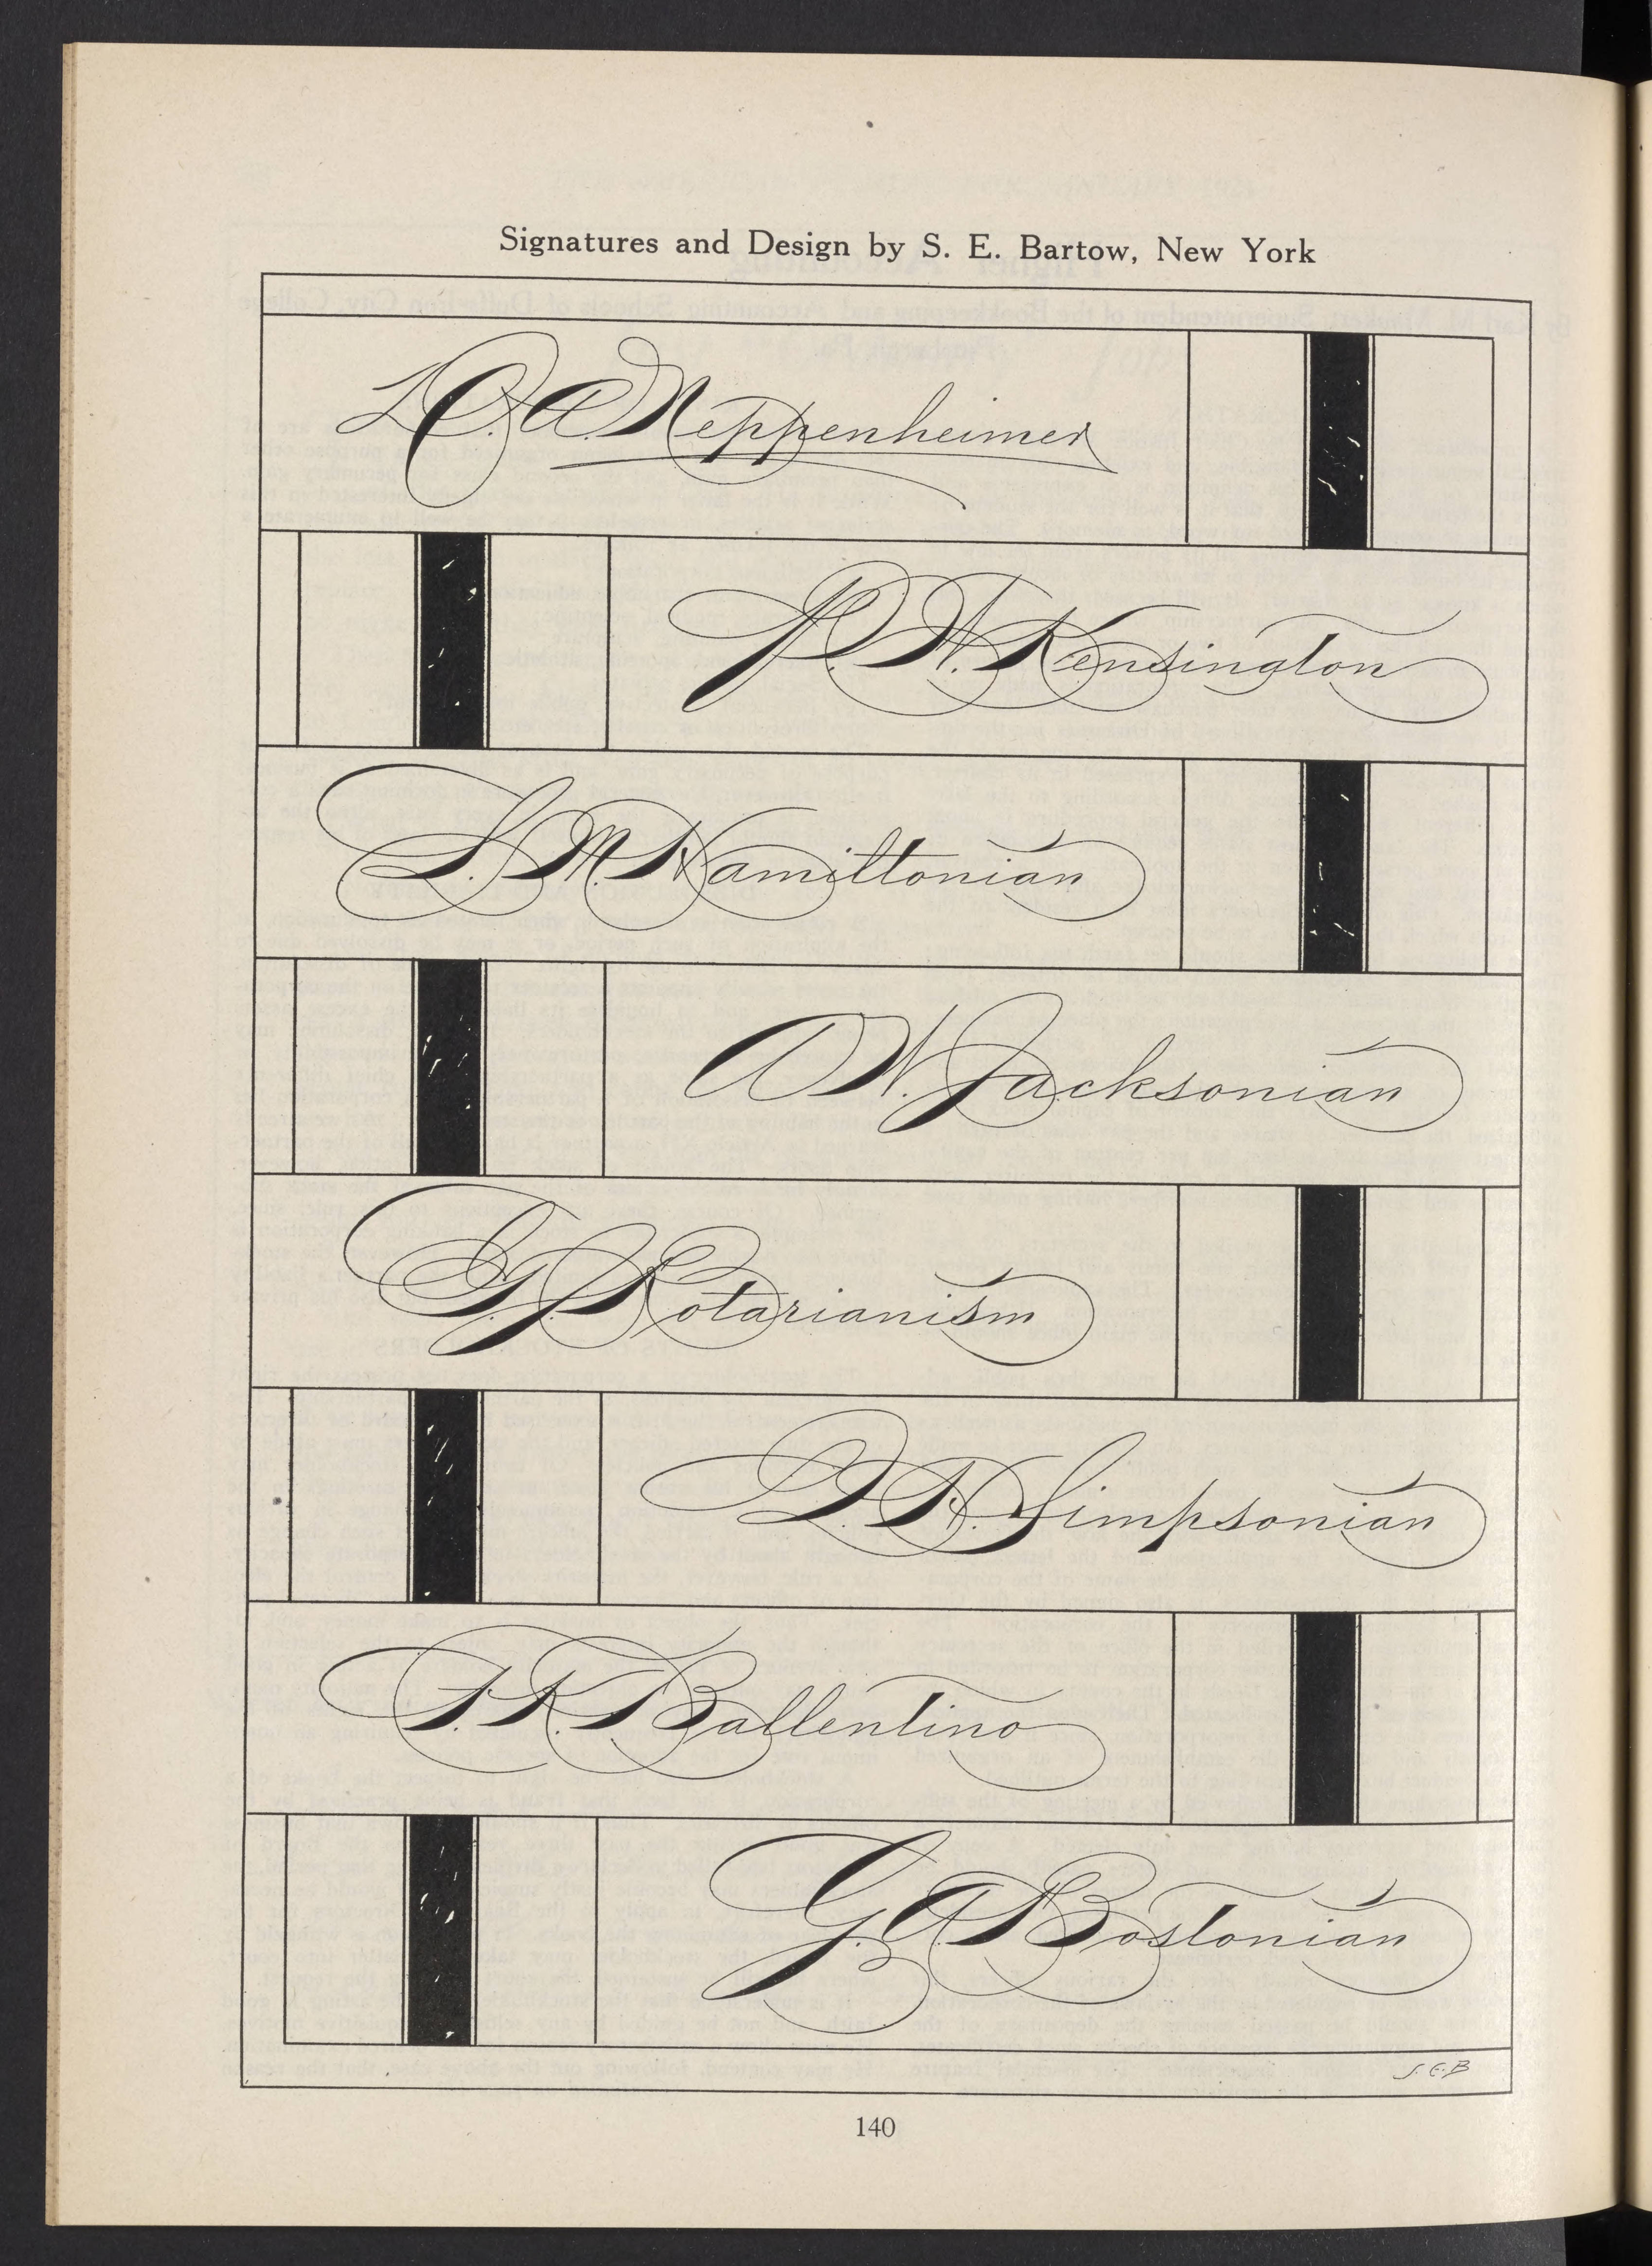 Signatures and Design by S. E. Bartow, New York
Neppenheimer
Kensington
L. M. Hamiltonian
A W. Jacksonian
G. J. Rotarianism
Simpsonian
Ballentino
G. A. Bostonian
S. E. B
140